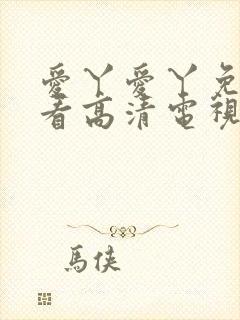 愛丫愛丫免
看高清電視
馬俠